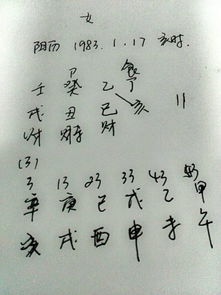 女
1983.1.17 亥时
食
壬 癸 乙 丁
戌 丑 巳 亥
财 财 财
(3)
3 13 23 33 43 53
辛 庚 己 戊 乙 甲
亥 戌 酉 申 午